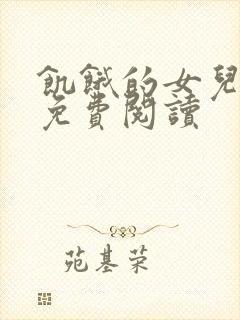 飢餓的女兒
免費閱讀
苑基荣